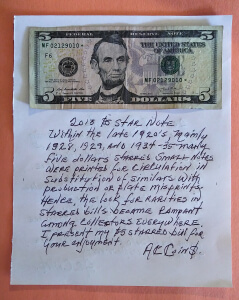 FEDERAL RESERVE NOTE
MF 02129010 *
F6
MF 02129010 *
FIVE DOLLARS
2013 $5 STAR NOTE
Within the late 1920's, mainly
1928, 1929, and 1934 - so many
Five dollars starred small notes
were printed for circulation in
substitution of similars with
production or plate misprints.
Hence the look for rarities in
starred bills became rampant
among collectors everywhere
I present my $5 starred bill for
your enjoyment.